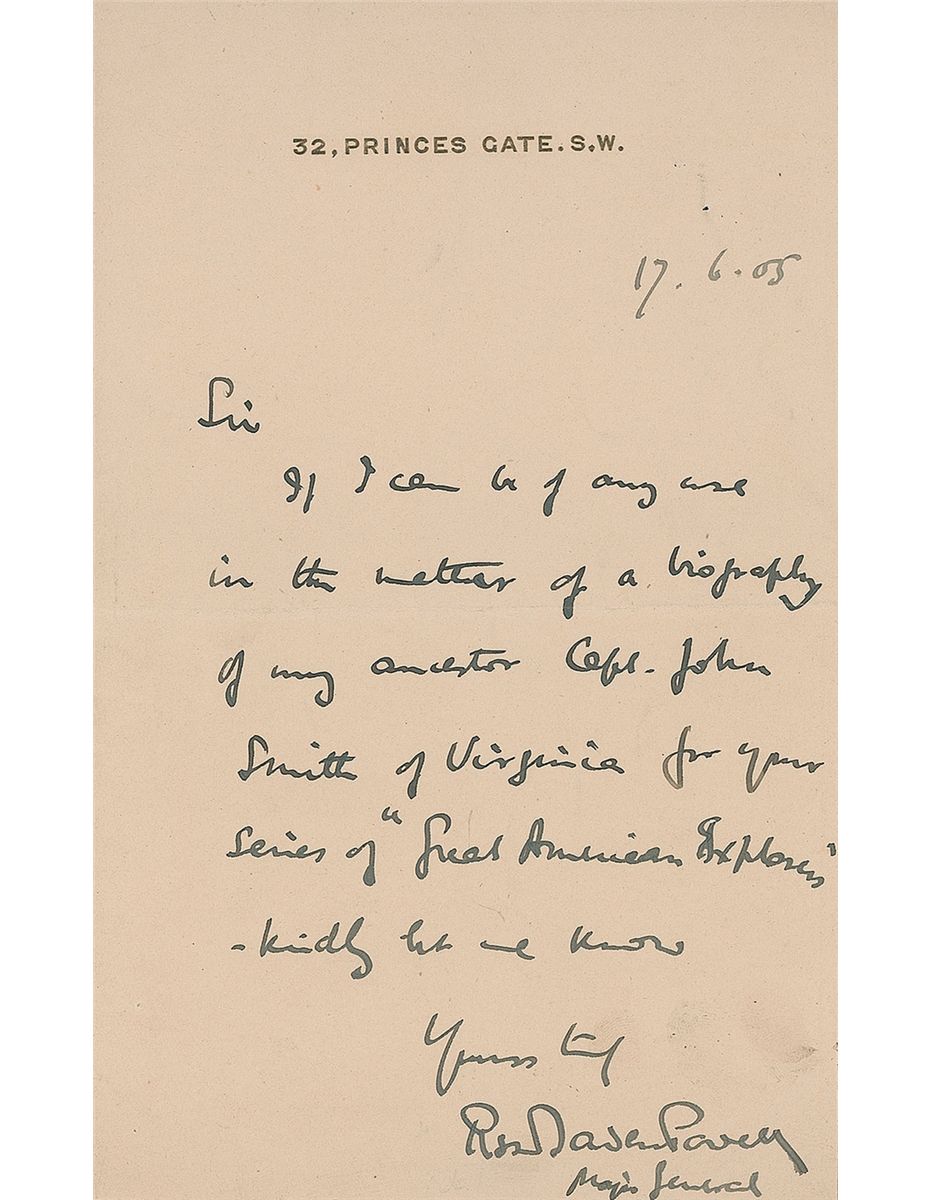 32, PRINCES GATE. S.W.
17. 6. 05
Sir
If I can be of any use
in the matter of a biography
of my ancestor Capt. John
Smith of Virginia for your
series of "Great American Explorers"
- kindly let me know
Yours tly
RSS Baden Powell
Major General